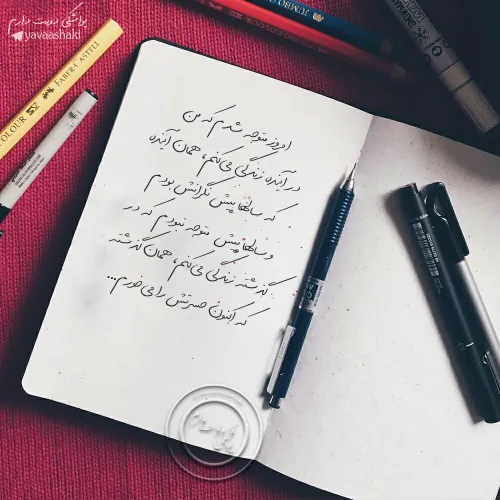 یواشکی دوست دارم
yavaashaki
FABER-CASTELL
COLOUR
JUMBO
امروز متوجه شدم که من
در آینده زندگی می‌کنم، همان آینده
که سالها پیش نگرانش بودم
و سالها پیش متوجه نبودم که در
گذشته زندگی می‌کنم، همان گذشته
که اکنون حسرتش را می‌خورم...